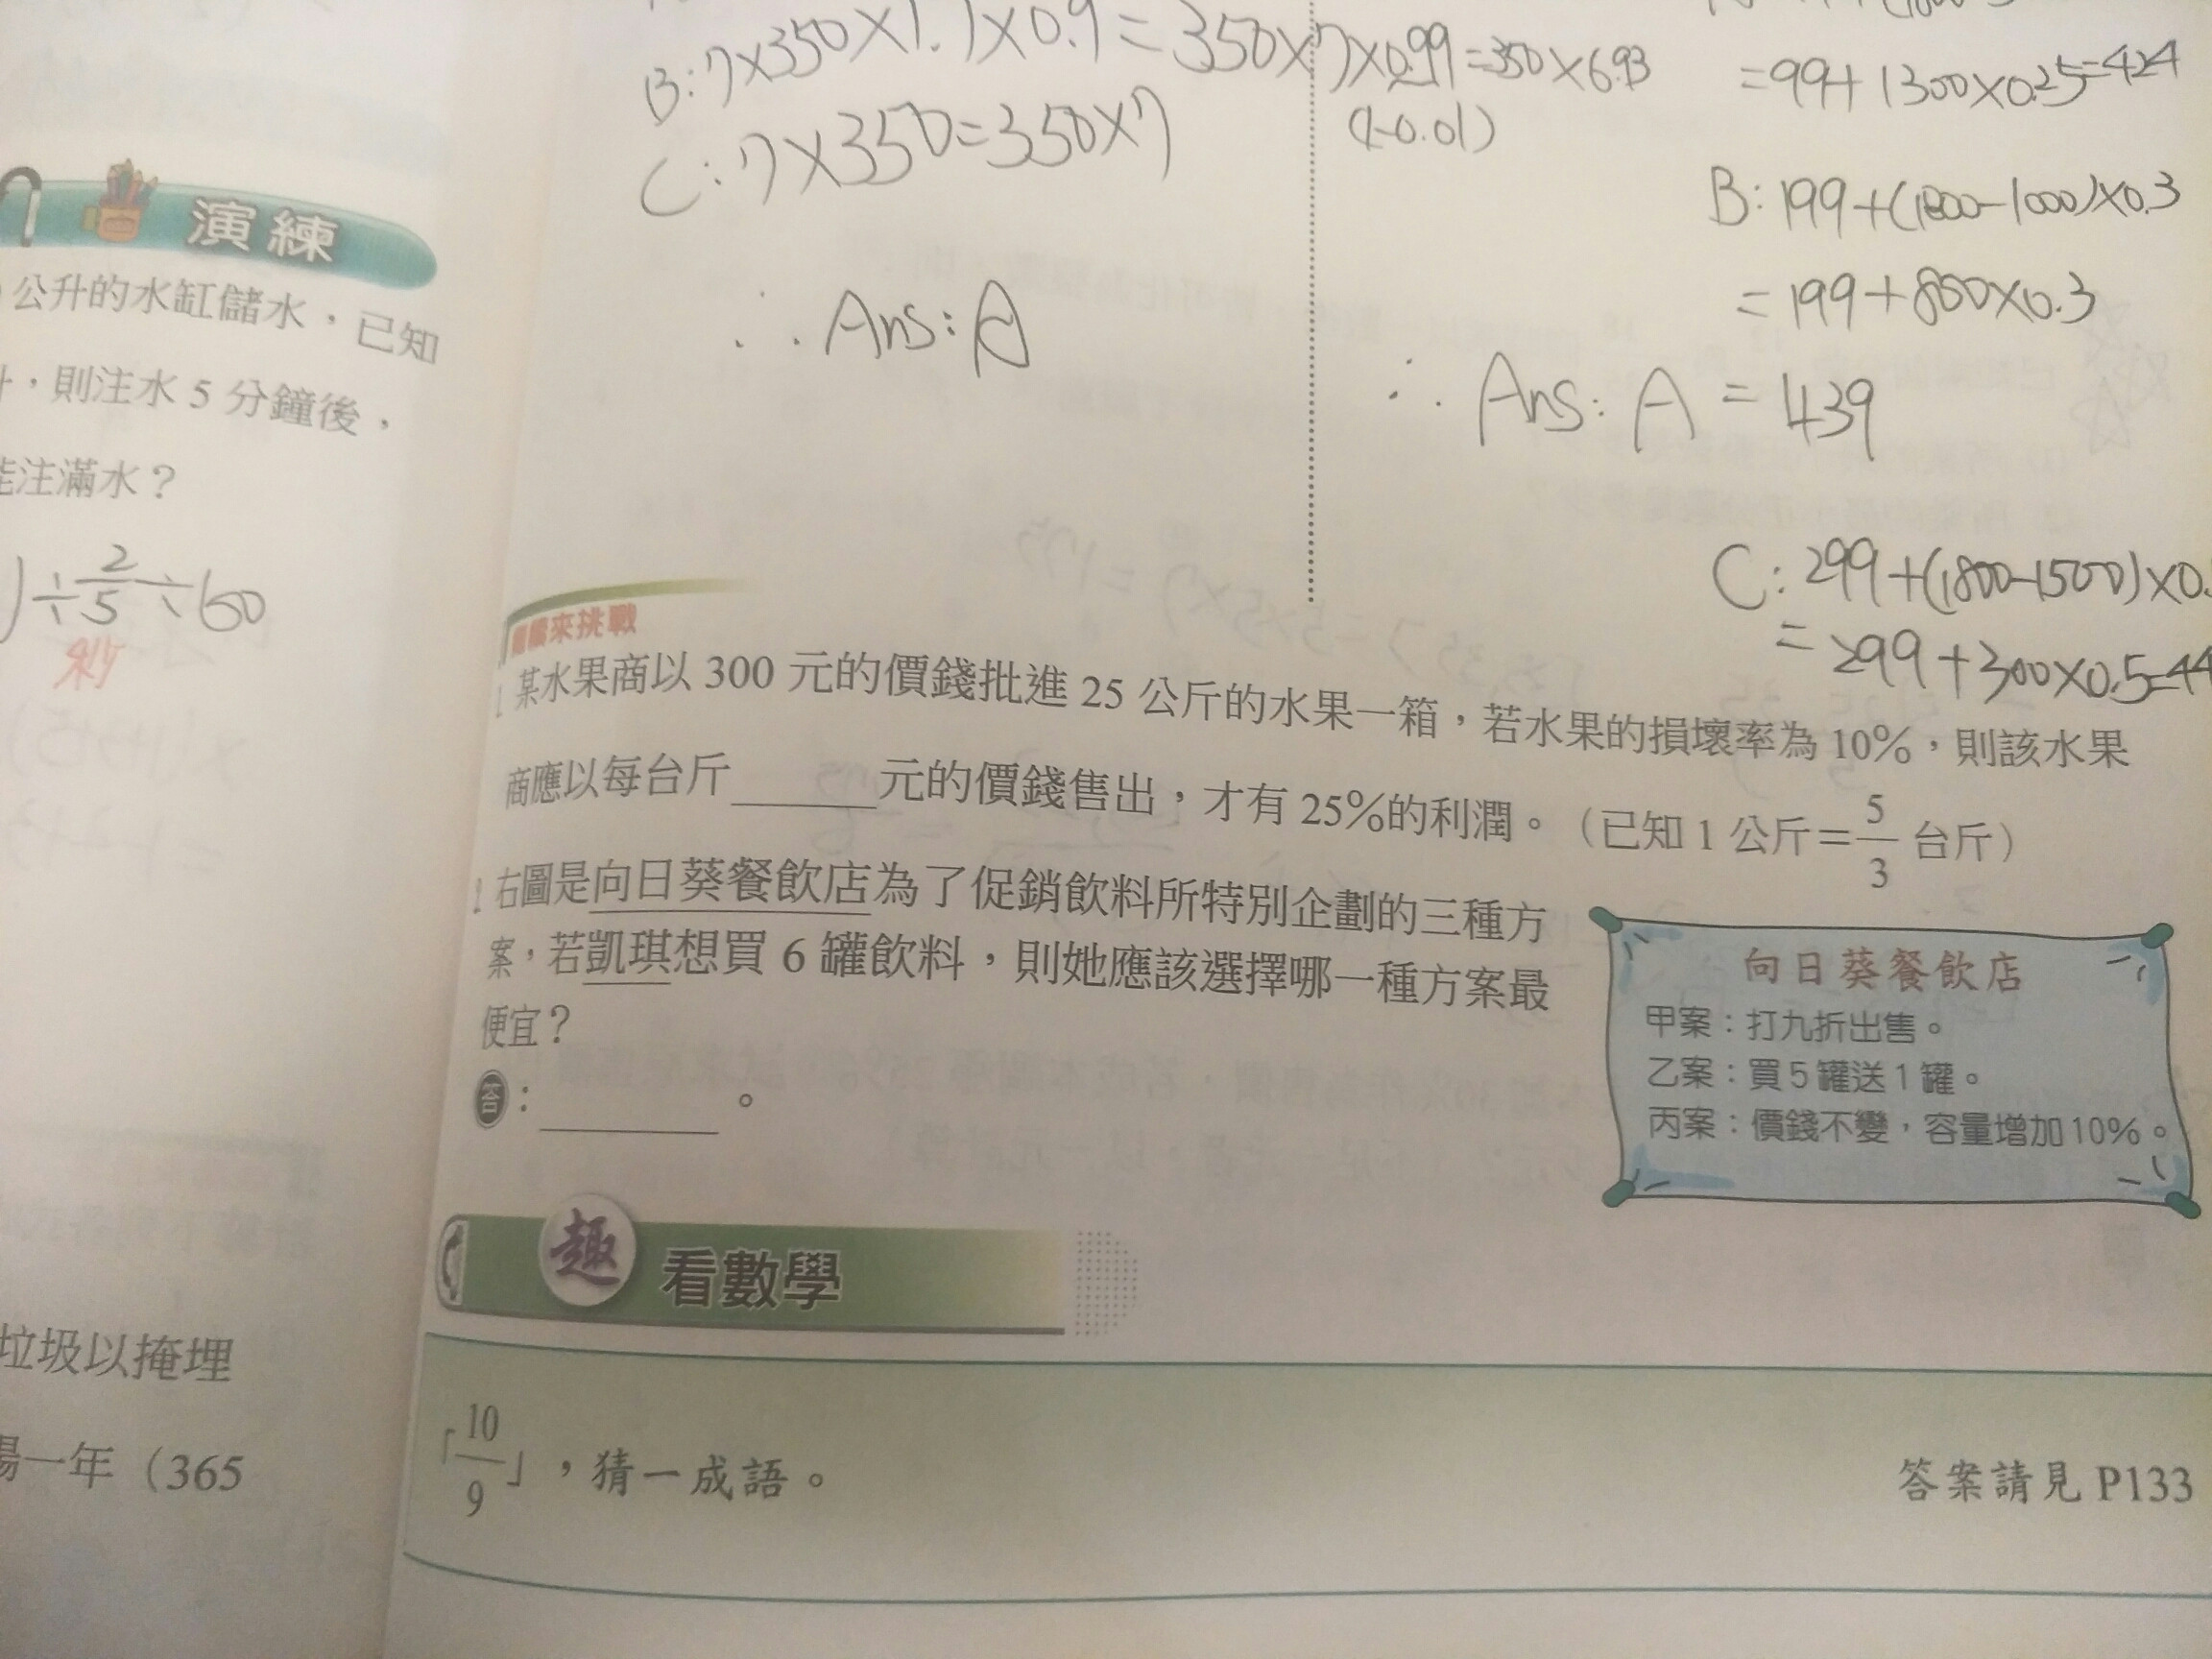 B: 7×350×1.1×0.9=350×7×0.99=350×6.93
(1-0.01)
C: 7×350=350×7
∴ Ans: A
=99+1300×0.25=424
B: 199+(1800-1000)×0.3
=199+800×0.3
=439
∴ Ans: A
C: 299+(1800-1500)×0.
=299+300×0.5=44
演練
公升的水缸儲水，已知
，則注水 5 分鐘後，
注滿水？
)÷2/5÷60
秒
垃圾以掩埋
一年（365
來挑戰
1 某水果商以 300 元的價錢批進 25 公斤的水果一箱，若水果的損壞率為 10%，則該水果
商應以每台斤______元的價錢售出，才有 25%的利潤。（已知 1 公斤＝5/3 台斤）
2 右圖是向日葵餐飲店為了促銷飲料所特別企劃的三種方
案，若凱琪想買 6 罐飲料，則她應該選擇哪一種方案最
便宜？
答：________。
向日葵餐飲店
甲案：打九折出售。
乙案：買 5 罐送 1 罐。
丙案：價錢不變，容量增加 10%。
趣看數學
「10/9」，猜一成語。
答案請見 P133